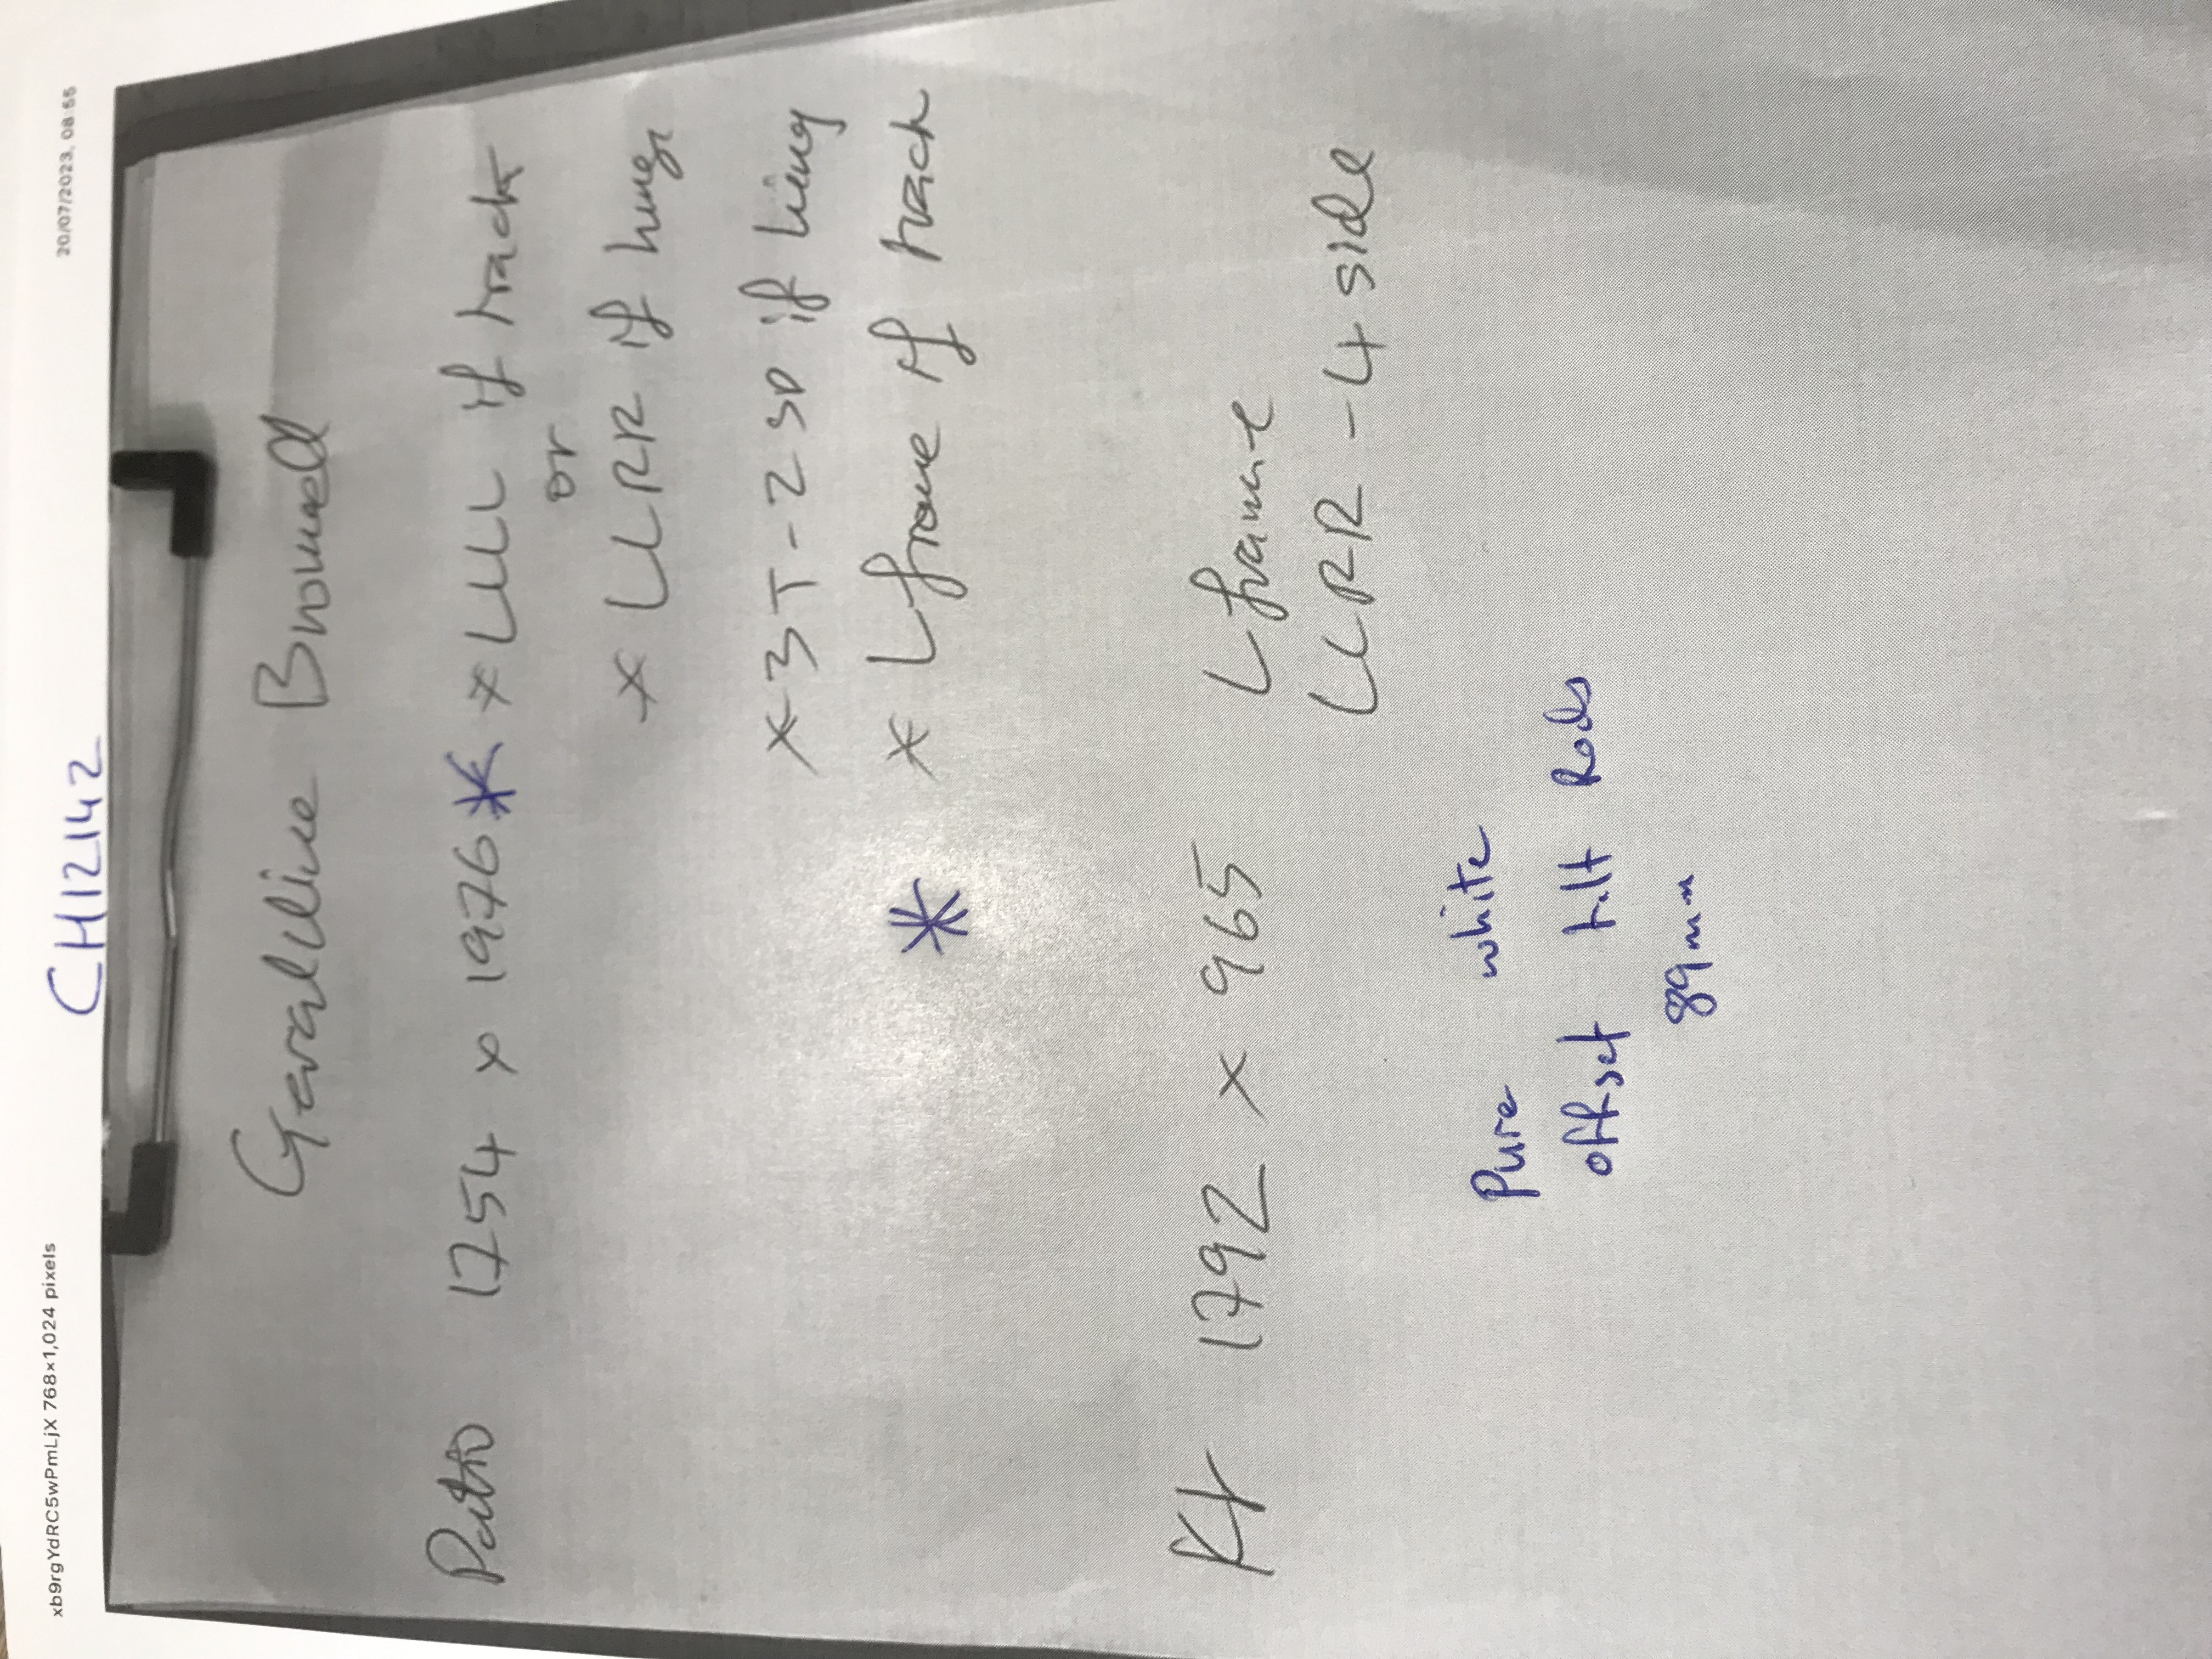 xb9rgYdRC5wPmLjX 768×1,024 pixels
20/07/2023, 08:55
CH12142
Geraldine Brownell
Patio 1754 x 1976 * * LLLL if track
or
* LLRR if hung
* 3T - 2SD if hung
* * L frame if track
Kt 1792 x 965 L frame
LLRR - 4 side
Pure white
offset tilt Rods
89mm